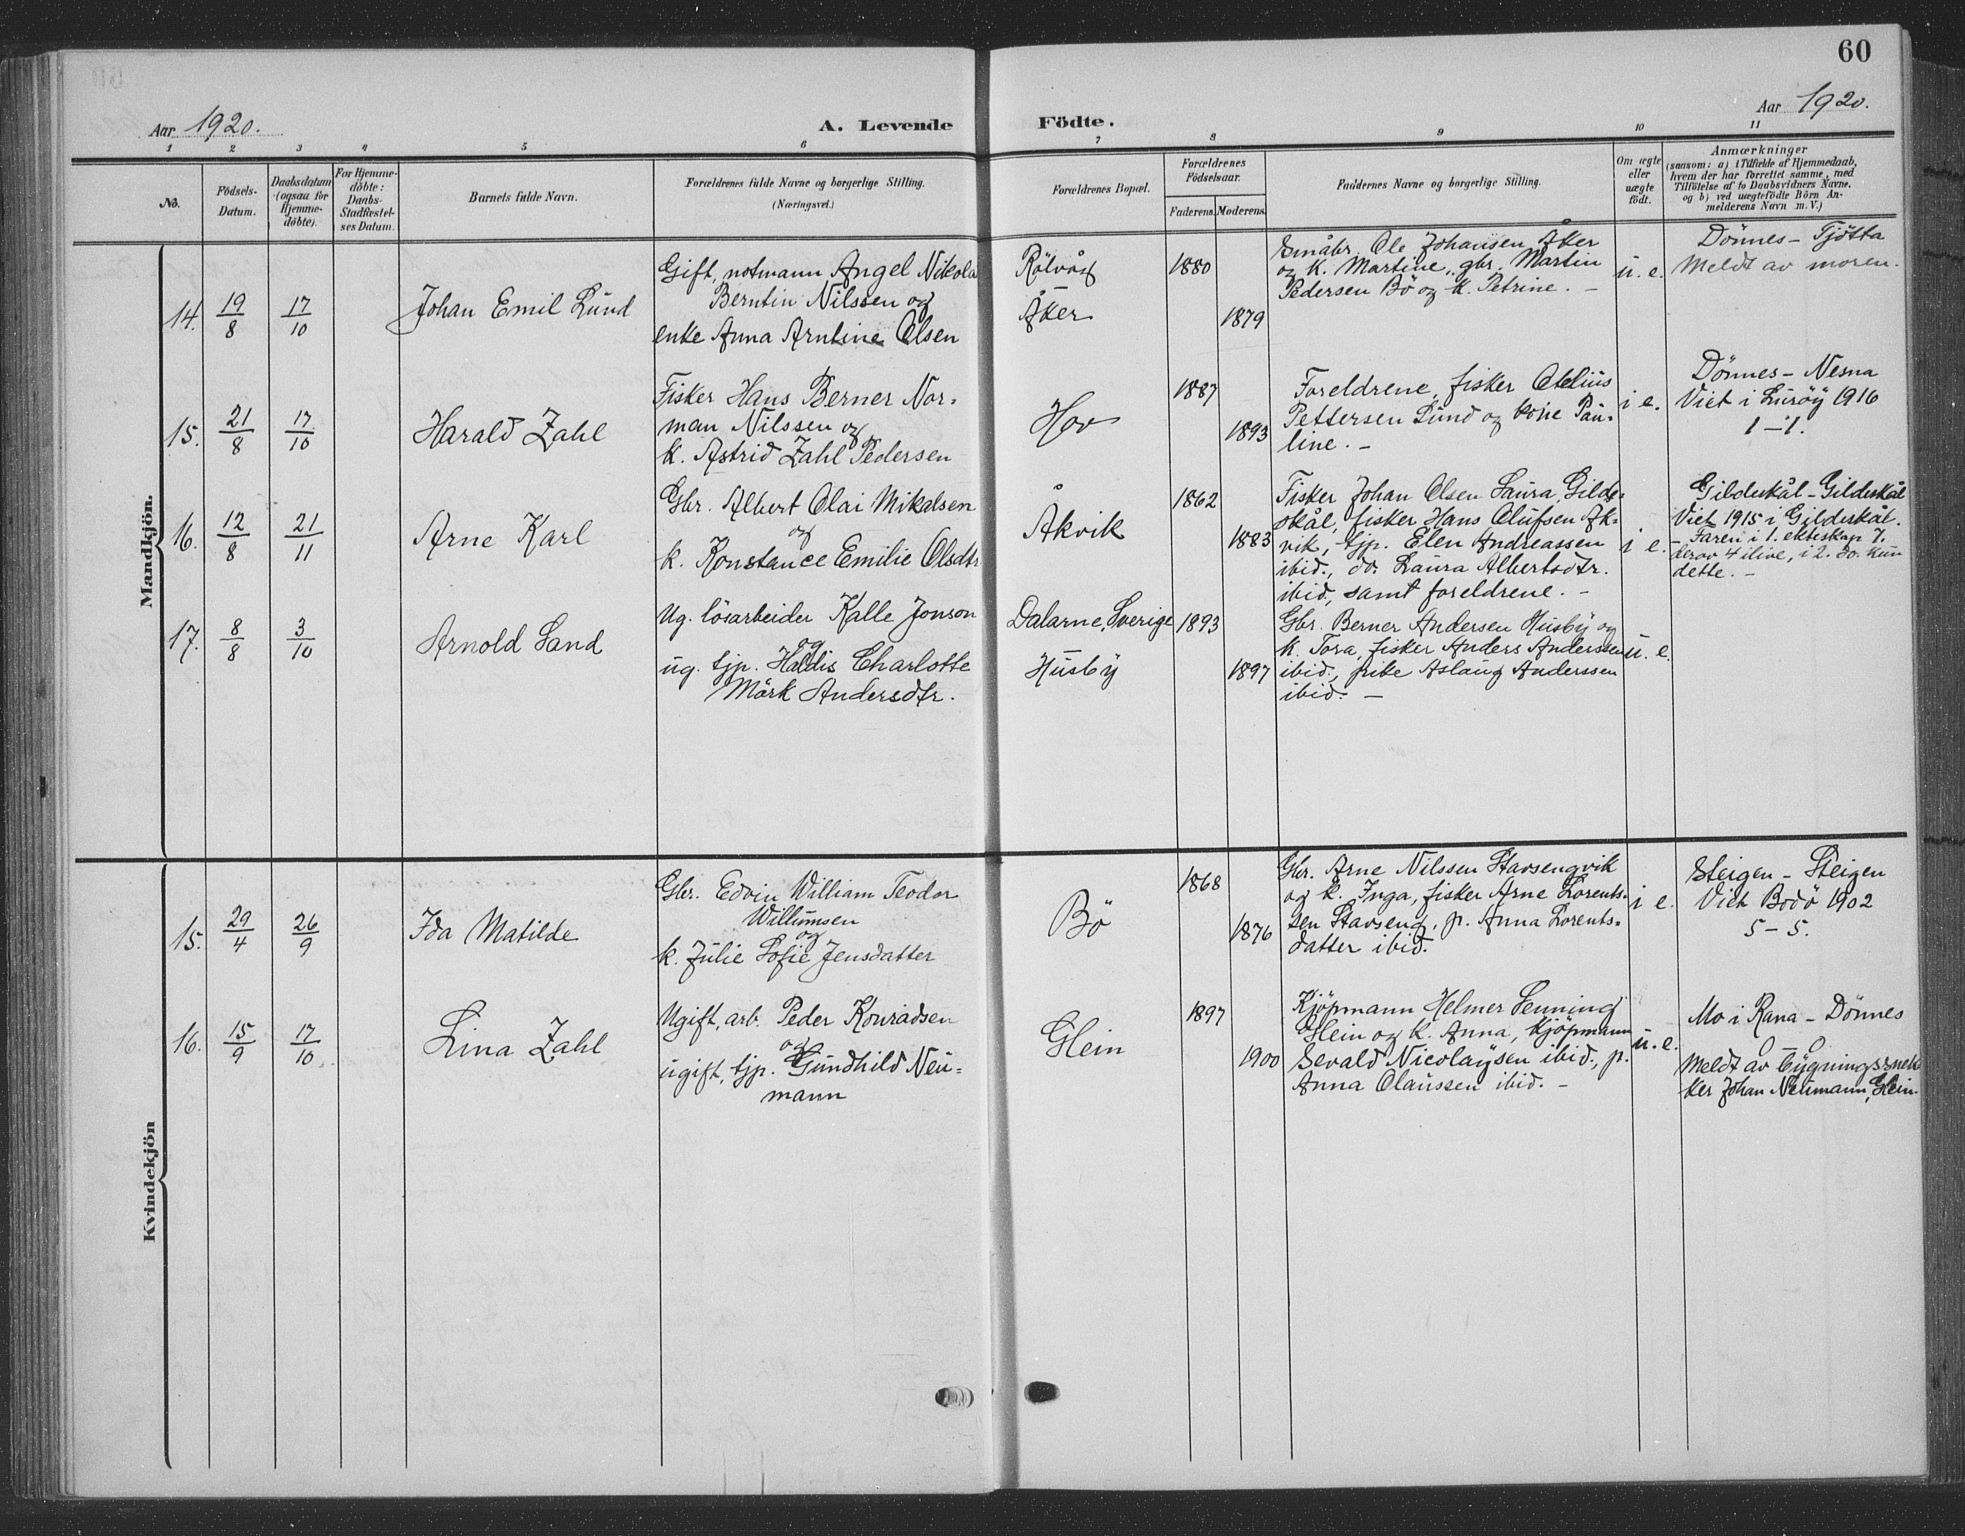 60
Aar 1920.
A. Levende
Födte.
Aar 1920.
1 2 3 4 5 6 7 8 9 10 11
No.
Födsels-
Datum.
Daabsdatum
(ogsaa for
Hjemme-
döbte).
For Hjemme-
döbte:
Daabs-
Stadfestel-
ses Datum.
Barnets fulde Navn.
Forældrenes fulde Navne og borgerlige Stilling.
(Næringsvei.)
Forældrenes Bopæl.
Forældrenes
Födselsaar.
Faderens. Moderens.
Faddernes Navne og borgerlige Stilling.
Om ægte
eller
uægte
födt.
Anmærkninger
(saasom: a) i Tilfælde af Hjemmedaab,
hvem der har forrettet samme, med
Tilföielse af to Daabsvidners Navne.
og b) ved uægtefödte Börn An-
melderens Navn m. V.)
Mandkjön.
14. 19/8 17/10
Johan Emil Lund
Gift, notmann Angel Nikolai
Berntin Nilssen og
enke Anna Arntine Olsen
Rølvåg
Åker
1880
1879
Småbr. Ole Johansen Åker
og k. Martine, gbr. Martin
Pedersen Bö og k. Petrine. –
u. e.
Dönnes – Tjötta
Meldt av moren.
15. 21/8 17/10
Harald Zahl
Fisker Hans Berner Nor-
man Nilssen og
k. Astrid Zahl Pedersen
Hov
1887
1893
Foreldrene, fisker Otelius
Pettersen Lund og kone Pau-
line. –
i e.
Dönnes – Nesna
Viet i Luröy 1916
1 – 1.
16. 12/8 21/11
Arne Karl
Gbr. Albert Olai Mikalsen
og
k. Konstance Emilie Olsdtr
Åkvik
1862
1883
Fisker Johan Olsen Saura, Gilde-
skål, fisker Hans Olufsen Åk-
vik, tjp. Elen Andreassen
ibid., do. Laura Albertsdtr.
ibid., samt foreldrene. –
i e.
Gildeskål – Gildeskål
Viet 1915 i Gildeskål.
– Faren i 1. ekteskap 7.
derav 4 ilive, i 2. do. kun
dette. –
17. 8/8 3/10
Arnold Sand
Ug. lösarbeider Kalle Jonson
og
ug. tjp. Haldis Charlotte
Mörk Andersdtr.
Dalarne, Sverige
Husby
1893
1897
Gbr. Berner Andersen Husby og
k. Tora, fisker Anders Anderssen
ibid., pike Aslaug Anderssen
ibid. –
u. e.
Kvindekjön
15. 29/4 26/9
Ida Matilde
Gbr. Edvin William Teodor
Willumsen
og
k. Julie Sofie Jensdatter
Bö
1868
1876
Gbr. Arne Nilssen Stavsengvik
og k. Inga, fisker Arne Lorents-
sen Stavseng, p. Anna Lorents-
datter ibid.
i e.
Steigen – Steigen
Viet Bodö 1902
5 – 5.
16. 15/9 17/10
Lina Zahl
Ugift, arb. Peder Konradsen
og
ugift, tjp. Gundhild Neu-
mann
Glein
1897
1900
Kjöpmann Helmer Lenning
Glein og k. Anna, kjöpmann
Sevald Nicolaysen ibid., p.
Anna Olaussen ibid. –
u. e.
Mo i Rana – Dönnes
0 0
Meldt av bygningssnek
ker Johan Neumann, Glein.